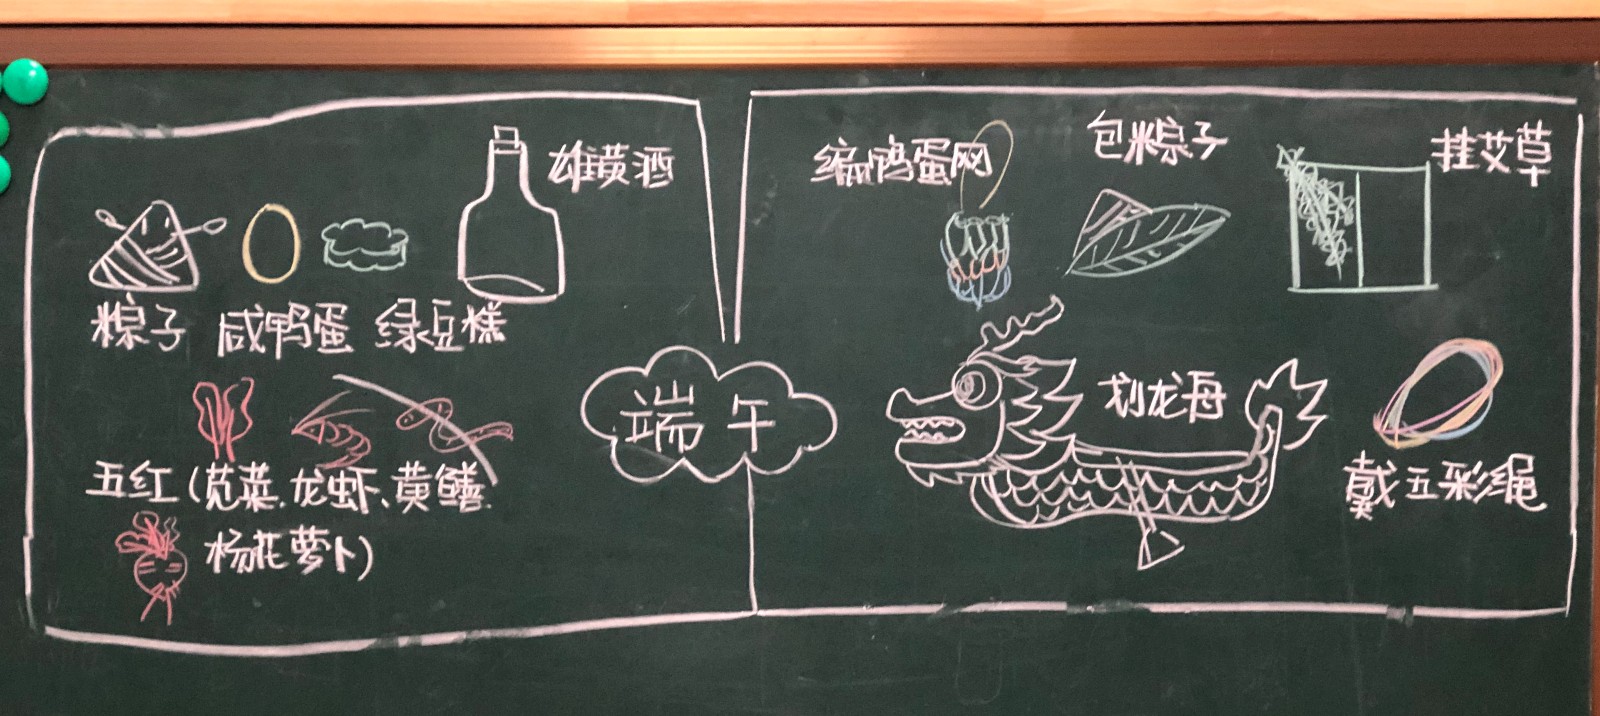 雄黄酒
粽子 咸鸭蛋 绿豆糕
五红(苋菜、龙虾、黄鳝、
杨花萝卜)
端午
编鸭蛋网
包粽子
挂艾草
划龙舟
戴五彩绳